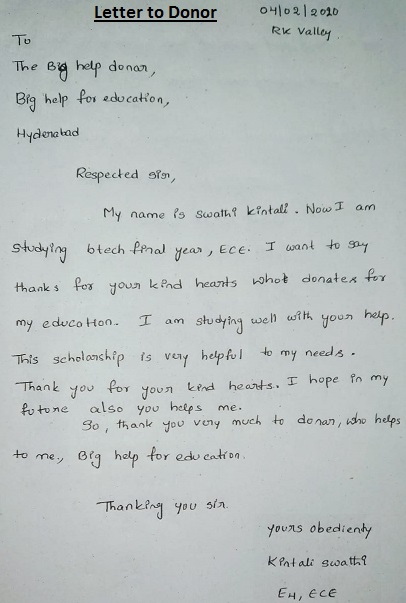 Letter to Donor
04/02/2020
RK Valley
To
The Big help donar,
Big help for education,
Hyderabad
Respected sir,
My name is swathi kintali. Now I am
studying btech final year, ECE. I want to say
thanks for your kind hearts whot donates for
my education. I am studying well with your help.
This scholarship is very helpful to my needs.
Thank you for your kind hearts. I hope in my
future also you helps me.
So, thank you very much to donar, who helps
to me, Big help for education.
Thanking you sir.
yours obedienty
Kintali swathi
E4, ECE